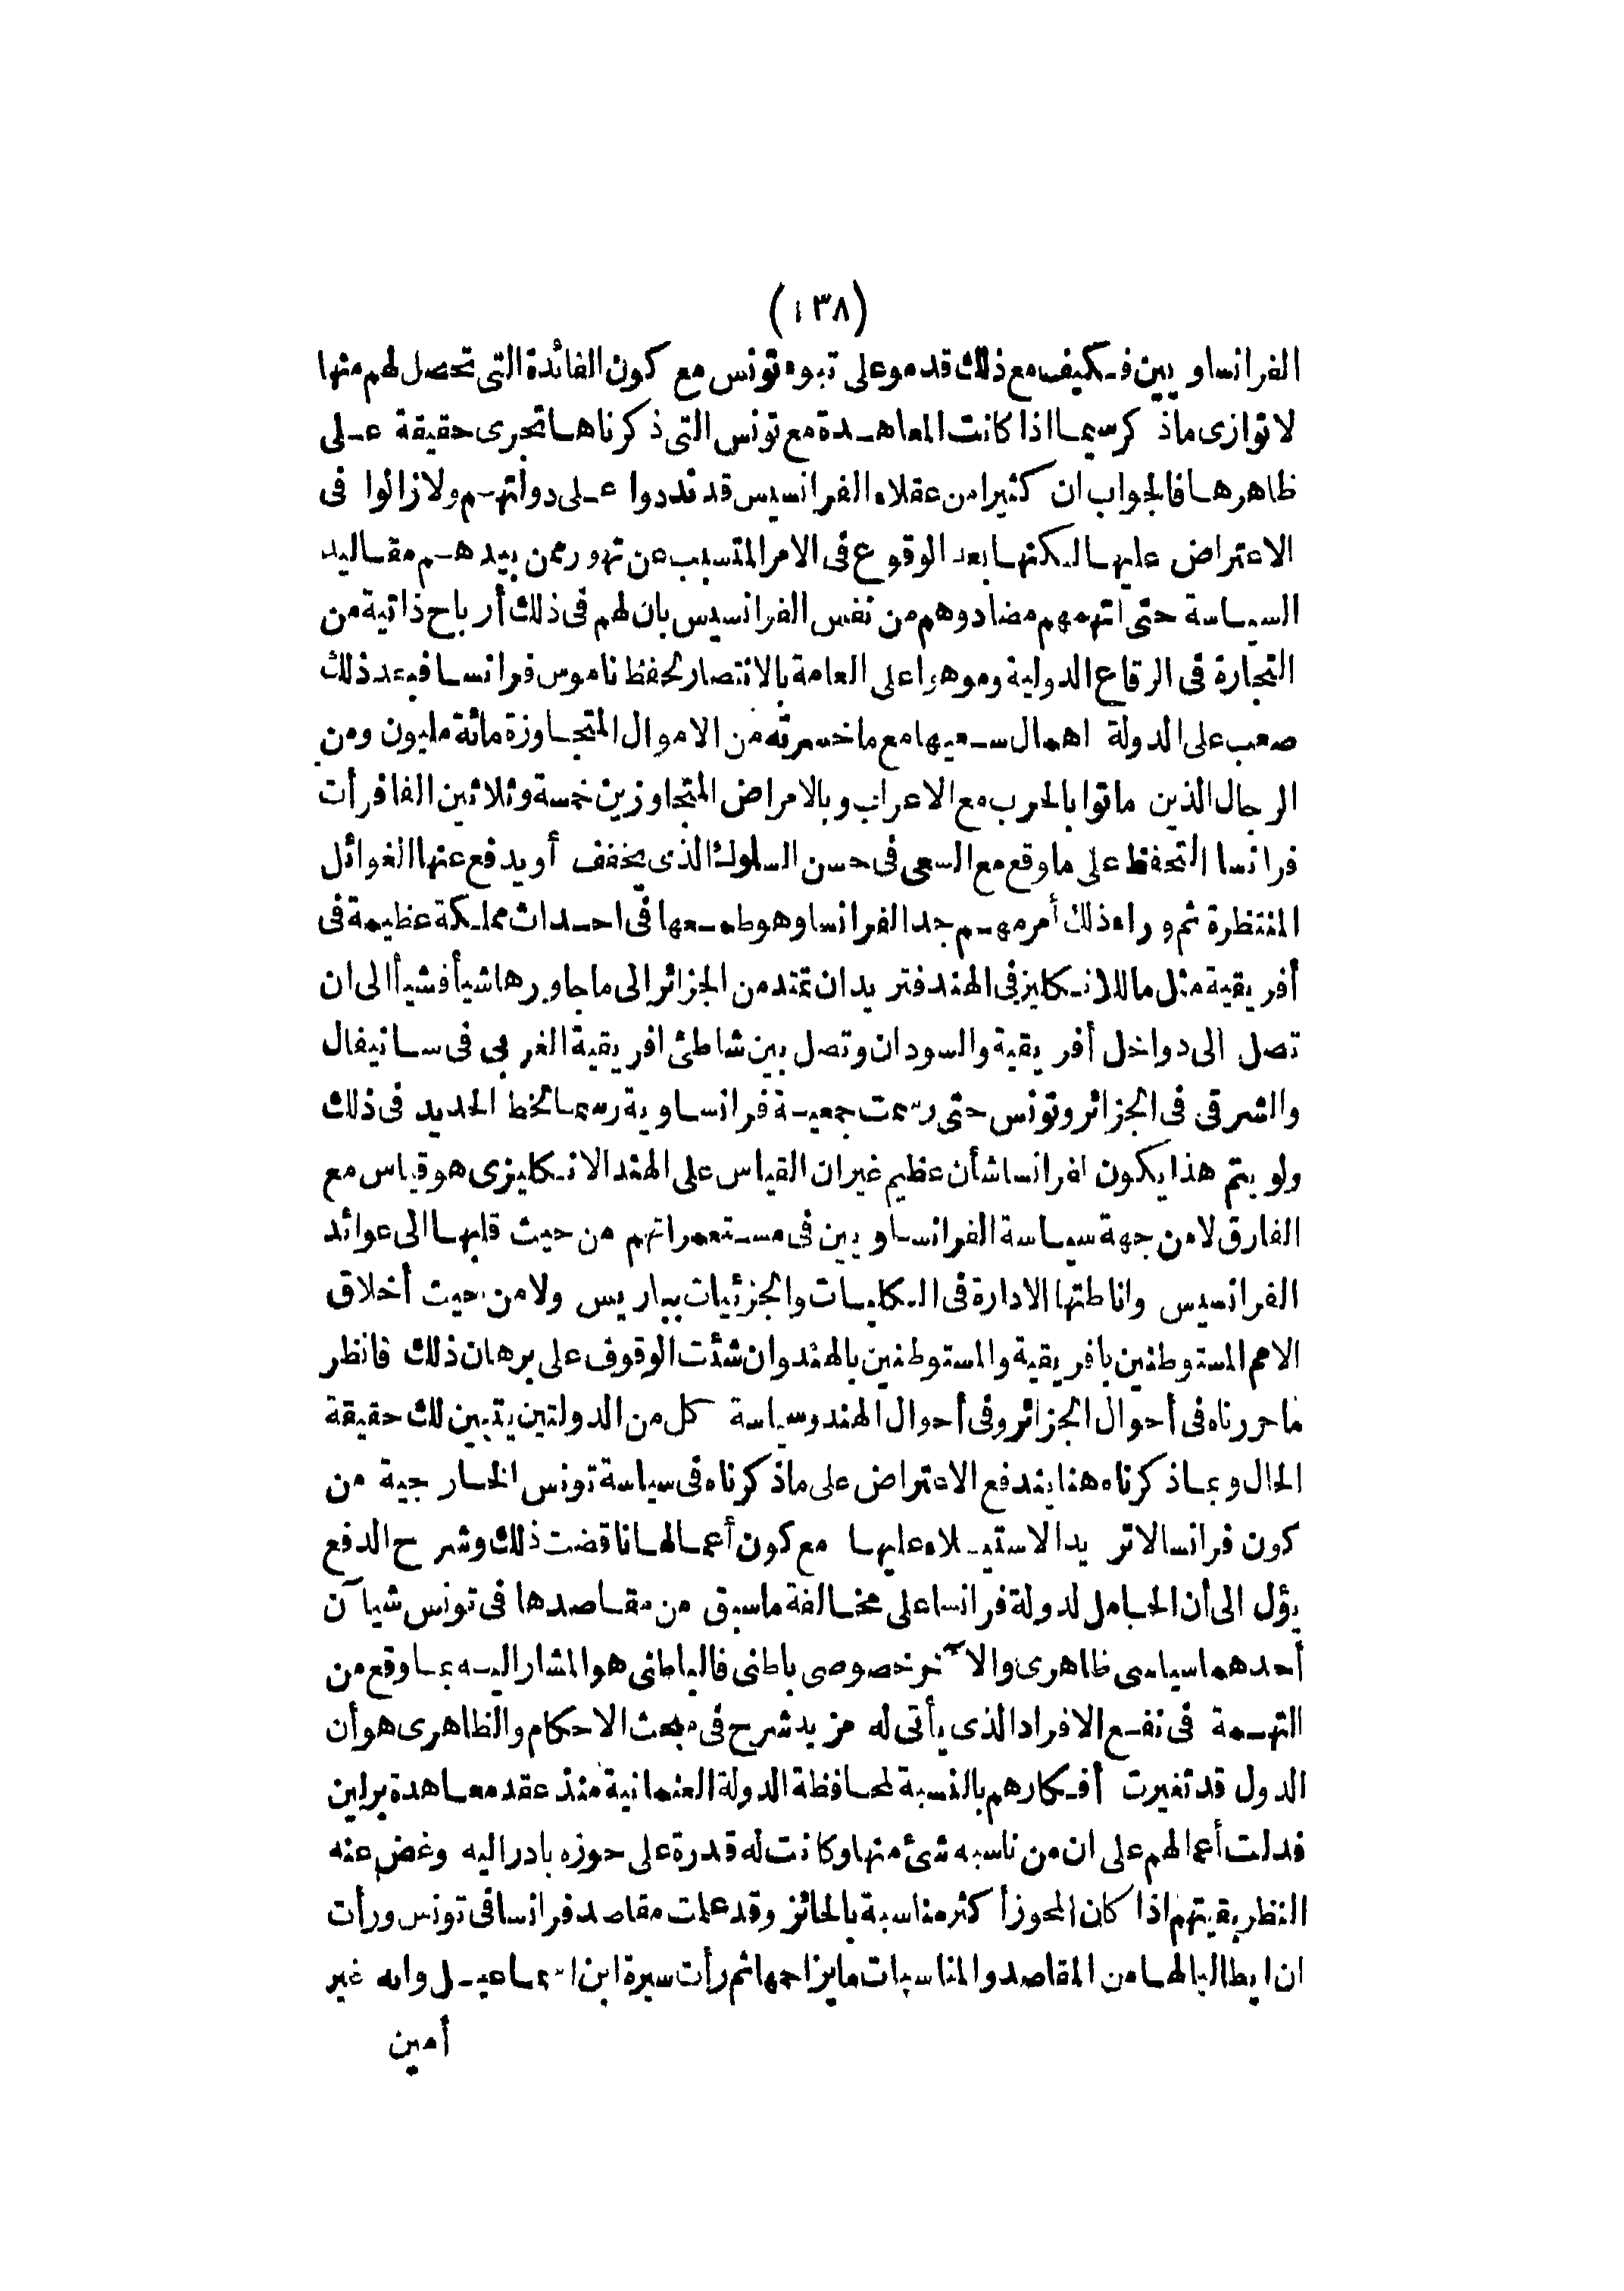 (١٣٨)
الفرانساويين فكيف مع ذلك قدموا على تبوء تونس مع كون الفائدة التى تحصل لهم منها
لا توازى ماذكر سيما اذا كانت المعاهدة مع تونس التى ذكرناها تجرى حقيقة على
ظاهرها فالجواب ان كثيرا من عقلاء الفرانسيس قد نددوا على دولتهم ولا زالوا فى
الاعتراض عليها لكنها بعد الوقوع فى الامر المتسبب عن تهور ممن بيدهم مقاليد
السياسة حتى اتهمهم مضادوهم من نفس الفرانسيس بان لهم فى ذلك أرباح ذاتية من
التجارة فى الرقاع الدولية وموهوا على العامة بالانتصار لحفظ ناموس فرانسا فبعد ذلك
صعب على الدولة اهمال سعيها مع ما خسرته من الاموال المتجاوزة مائة مليون ومن
الرجال الذين ماتوا بالحرب مع الاعراب وبالامراض المتجاوزين خمسة وثلاثين الفا فرأت
فرانسا التحفظ على ما وقع مع السعى فى حسن السلوك الذى يخفف أو يدفع عنها الغوائل
المنتظرة ثم وراء ذلك أمر مهم جدا لفرانسا وهو طمعها فى احداث مملكة عظيمة فى
أفريقية مثل ما للانكليز فى الهند فتريد ان تمتد من الجزائر الى ما جاورها شيأ فشيأ الى ان
تصل الى دواخل أفريقية والسودان وتصل بين شاطئ افريقية الغربى فى سانيفال
والشرقى فى الجزائر وتونس حتى رسمت جمعية فرانساوية رسما لخط الحديد فى ذلك
ولو يتم هذا يكون لفرانسا شأن عظيم غير ان القياس على الهند الانكليزى هو قياس مع
الفارق لا من جهة سياسة الفرانساويين فى مستعمراتهم من حيث قلبها الى عوائد
الفرانسيس واناطتها الادارة فى الكليات والجزئيات بباريس ولا من حيث أخلاق
الامم المستوطنين بافريقية والمستوطنين بالهند وان شئت الوقوف على برهان ذلك فانظر
ما حررناه فى أحوال الجزائر وفى أحوال الهند وسياسة كل من الدولتين يتبين لك حقيقة
الحال وبماذكرناه هنا يندفع الاعتراض على ماذكرناه فى سياسة تونس الخارجية من
كون فرانسا لا تريد الاستيلاء عليها مع كون أعمالها ناقضت ذلك وشرح الدفع
يؤل الى أن الحامل لدولة فرانسا على مخالفة ما سبق من مقاصدها فى تونس شيآن
أحدهما سياسى ظاهرى والآخر خصوصى باطنى فالباطنى هو المشار اليه بما وقع من
التهمة فى نفع الافراد الذى يأتى له مزيد شرح فى مبحث الاحكام والظاهرى هو أن
الدول قد تغيرت أفكارهم بالنسبة لمحافظة الدولة العثمانية منذ عقد معاهدة برلين
فدلت أعمالهم على ان من ناسبه شئ منها وكانت له قدرة على حوزه بادر اليه وغض عنه
النظر بقيتهم اذا كان المحوز أكثر مناسبة بالحائز وقد علمت مقاصد فرانسا فى تونس ورأت
ان ايطاليا لها من المقاصد والمناسبات ما يزاحمها ثم رأت سيرة ابن اسماعيل وانه غير
أمين